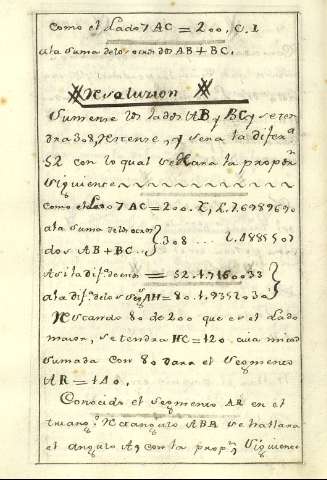 Como el Lado 7 AC = 200, C. l
ala suma de los otros dos AB + BC.
Resoluzion
Sumense los lados AB y BC y se ten
dra 308, restense, y sera la difer.ª
52 con lo qual se hara la propor.n
siguiente
Como el Lado 7 AC = 200. L. 2.3010300
ala suma de los otros
dos AB + BC .. 308 ... 2.4885507
Asi la dif.ª de
= 52. 1.7160033
ala dif.ª de los seg.s AH = 80. 1.9035
Restando 80 de 200 que es el lado
maior, se tendra HC = 120. cuia mitad
sumada con 80 dara el segmento
AR = 140.
Conocido el segmento AR en el
triang.o Rectangulo ABR se hallara
el angulo A, con la prop.n siguiente